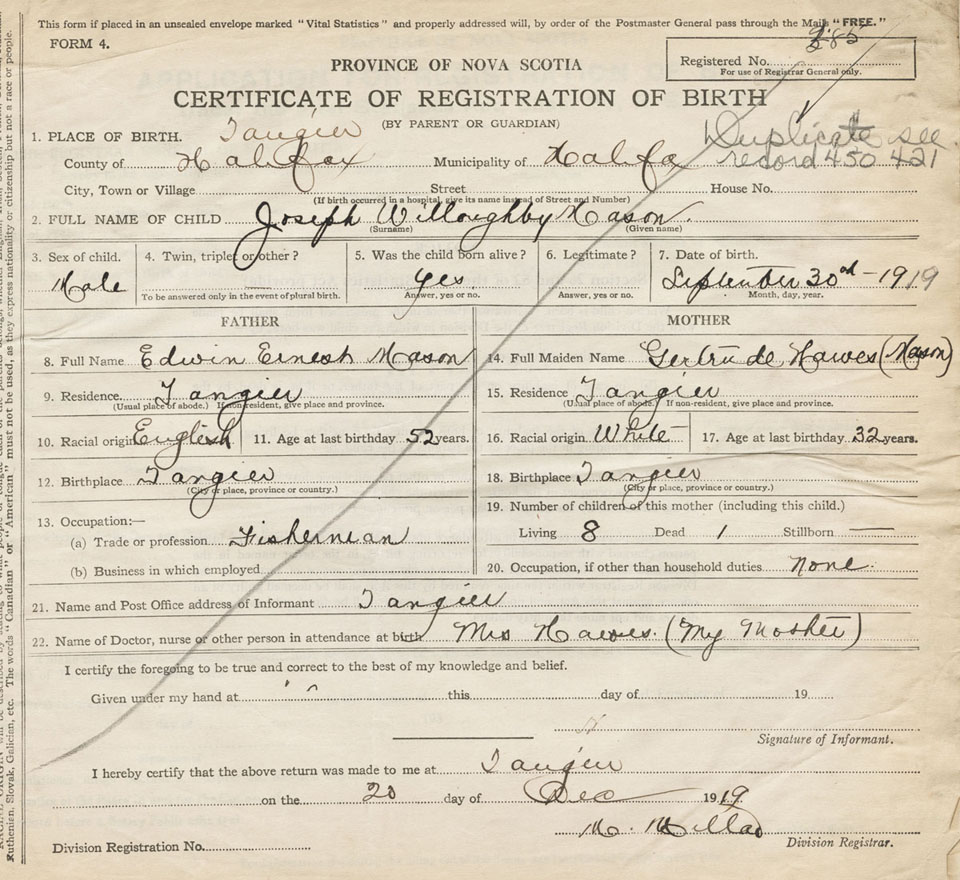 This form if placed in an unsealed envelope marked "Vital Statistics" and properly addressed will, by order of the Postmaster General pass through the Mails "FREE."
FORM 4.
385
Registered No.
For use of Registrar General only.
PROVINCE OF NOVA SCOTIA
CERTIFICATE OF REGISTRATION OF BIRTH
(BY PARENT OR GUARDIAN)
Duplicate see
record 450 421
1. PLACE OF BIRTH. Tangier
County of Halifax Municipality of Halifa
City, Town or Village Street House No.
(If birth occurred in a hospital, give its name instead of Street and Number)
2. FULL NAME OF CHILD Joseph Willoughby Mason.
(Surname) (Given name)
3. Sex of child. 4. Twin, triplet or other? 5. Was the child born alive? 6. Legitimate? 7. Date of birth.
Male Yes September 30 - 1919
To be answered only in the event of plural birth. Answer, yes or no. Answer, yes or no. Month, day, year.
FATHER MOTHER
8. Full Name Edwin Ernest Mason 14. Full Maiden Name Gertrude Hawes (Mason)
9. Residence. Tangier 15. Residence Tangier
(Usual place of abode.) If non-resident, give place and province. (Usual place of abode.) If non-resident, give place and province.
10. Racial origin English 11. Age at last birthday 52 years. 16. Racial origin White 17. Age at last birthday 32 years.
12. Birthplace Tangier 18. Birthplace Tangier
(City or place, province or country.) (City or place, province or country.)
13. Occupation:— 19. Number of children of this mother (including this child.)
(a) Trade or profession Fisherman Living 8 Dead 1 Stillborn —
(b) Business in which employed 20. Occupation, if other than household duties None.
21. Name and Post Office address of Informant Tangier
22. Name of Doctor, nurse or other person in attendance at birth Mrs Hawes. (My Mother)
I certify the foregoing to be true and correct to the best of my knowledge and belief.
Given under my hand at this day of 19
Signature of Informant.
I hereby certify that the above return was made to me at Tangier
on the 20 day of Dec 1919
M.
Division Registration No. Division Registrar.
Ruthenian, Slovak, Galician, etc. The words "Canadian" or "American" must not be used, as they express nationality or citizenship but not a race or people.